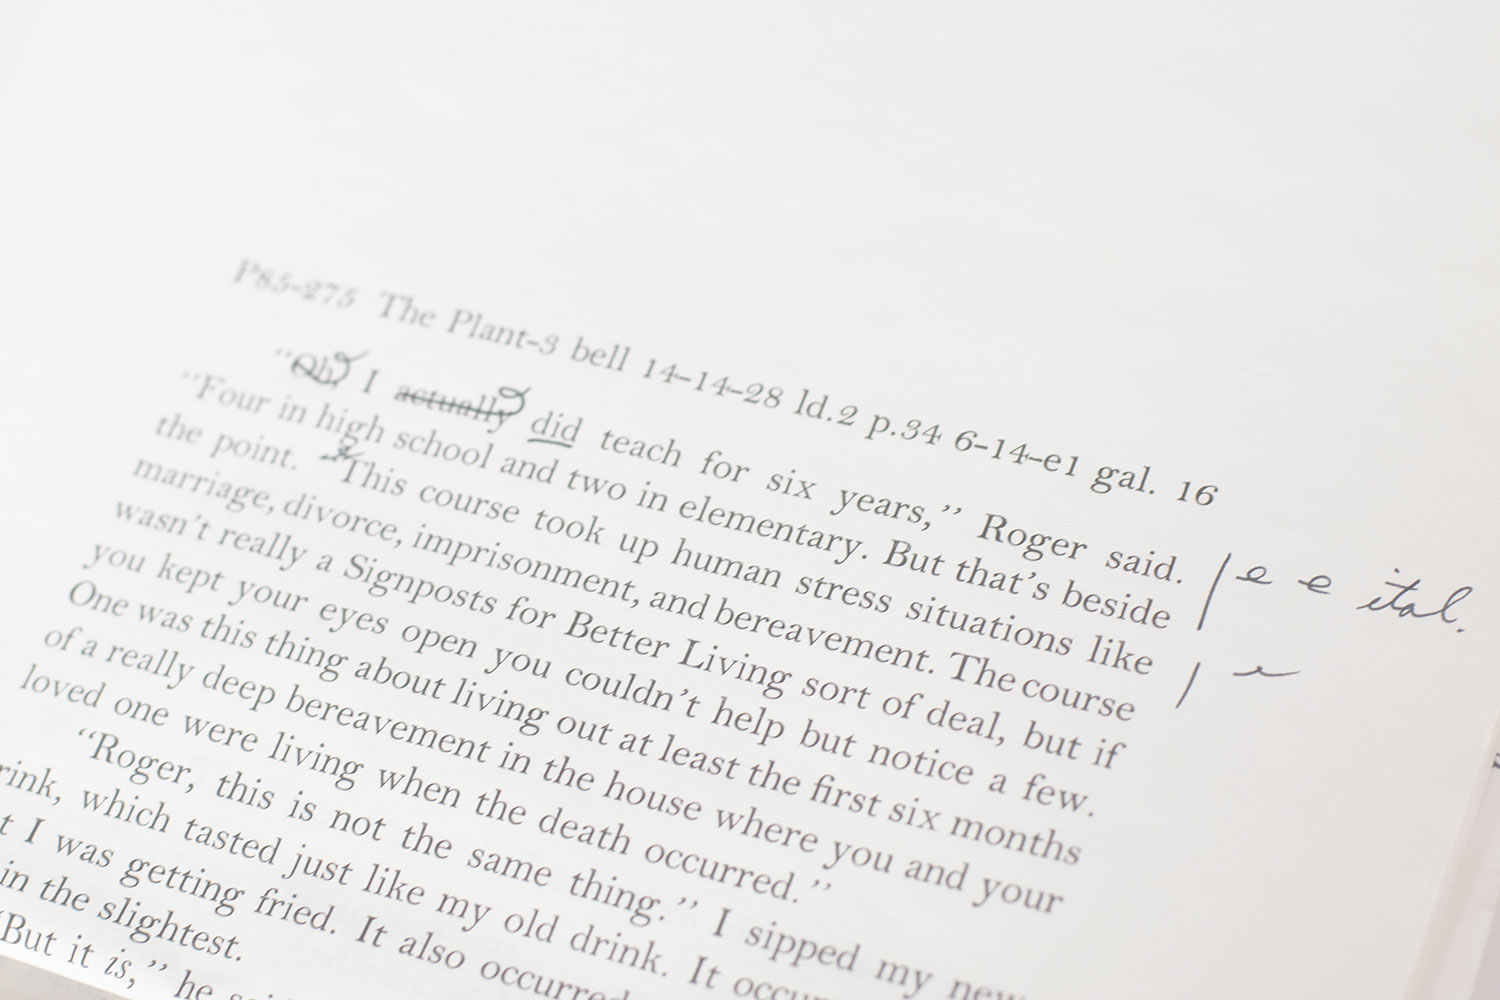 P85-275 The Plant-3 bell 14-14-28 ld.2 p.34 6-14-e1 gal. 16
"Oh, I actually did teach for six years," Roger said.
"Four in high school and two in elementary. But that's beside
the point. "This course took up human stress situations like
marriage, divorce, imprisonment, and bereavement. The course
wasn't really a Signposts for Better Living sort of deal, but if
you kept your eyes open you couldn't help but notice a few.
One was this thing about living out at least the first six months
of a really deep bereavement in the house where you and your
loved one were living when the death occurred."
"Roger, this is not the same thing." I sipped my new
rink, which tasted just like my old drink. It occu
t I was getting fried. It also occurred
in the slightest.
"But it is," he
ital.